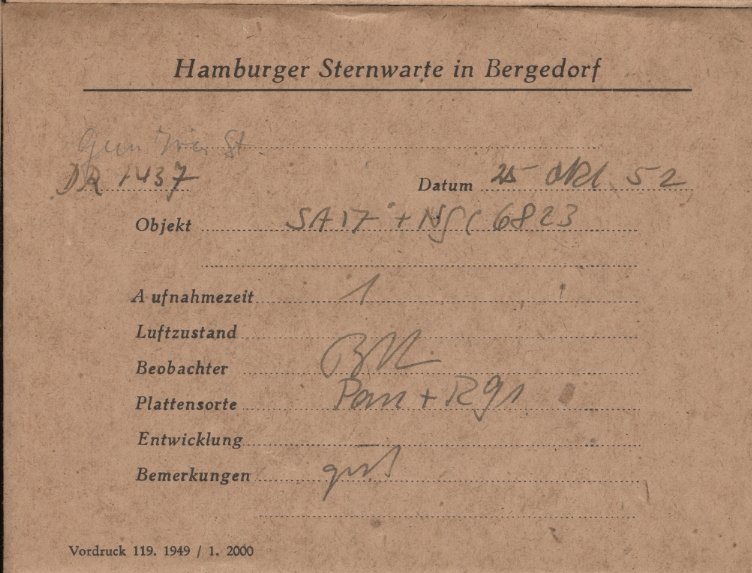 Hamburger Sternwarte in Bergedorf
DR 1437
Datum 25 Okt. 52
Objekt SA 17 + NGC 6823
Aufnahmezeit 1
Luftzustand
Beobachter
Plattensorte Pan + Rg1
Entwicklung
Bemerkungen gut
Vordruck 119. 1949 / 1. 2000